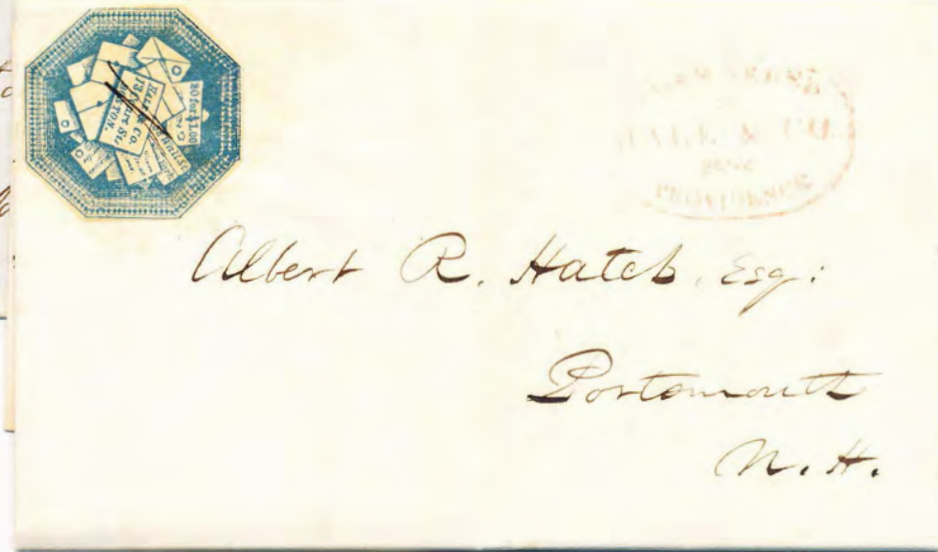 20 for $1.00
HALE & CO.
13 Court St.
BOSTON.
HALE & CO.
PROVIDENCE
Albert R. Hatch, Esq:
Portsmouth
N. H.